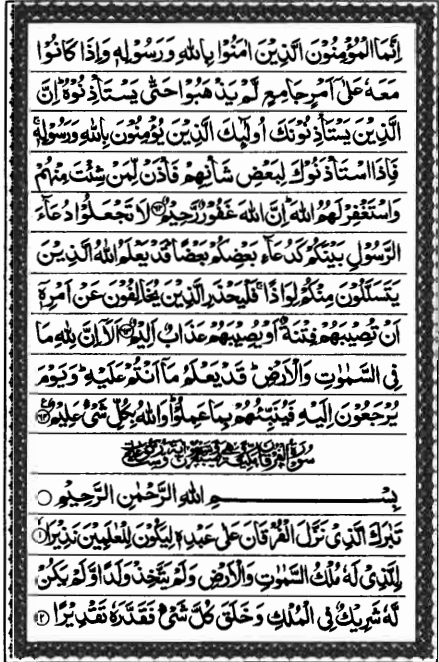 اِنَّمَا الْمُؤْمِنُوْنَ الَّذِيْنَ اٰمَنُوْا بِاللّٰهِ وَ رَسُوْلِهٖ وَ اِذَا كَانُوْا
مَعَهٗ عَلٰۤى اَمْرٍ جَامِعٍ لَّمْ يَذْهَبُوْا حَتّٰى يَسْتَاْذِنُوْهُ ؕ اِنَّ
الَّذِيْنَ يَسْتَاْذِنُوْنَكَ اُولٰٓئِكَ الَّذِيْنَ يُؤْمِنُوْنَ بِاللّٰهِ وَرَسُوْلِهٖ ۚ
فَاِذَا اسْتَاْذَنُوْكَ لِبَعْضِ شَاْنِهِمْ فَاْذَنْ لِّمَنْ شِئْتَ مِنْهُمْ
وَاسْتَغْفِرْ لَهُمُ اللّٰهَ ؕ اِنَّ اللّٰهَ غَفُوْرٌ رَّحِيْمٌ ﴿۶۲﴾ لَا تَجْعَلُوْا دُعَآءَ
الرَّسُوْلِ بَيْنَكُمْ كَدُعَآءِ بَعْضِكُمْ بَعْضًا ؕ قَدْ يَعْلَمُ اللّٰهُ الَّذِيْنَ
يَتَسَلَّلُوْنَ مِنْكُمْ لِوَاذًا ۚ فَلْيَحْذَرِ الَّذِيْنَ يُخَالِفُوْنَ عَنْ اَمْرِهٖۤ
اَنْ تُصِيْبَهُمْ فِتْنَةٌ اَوْ يُصِيْبَهُمْ عَذَابٌ اَلِيْمٌ ﴿۶۳﴾ اَلَاۤ اِنَّ لِلّٰهِ مَا
فِى السَّمٰوٰتِ وَالْاَرْضِ ؕ قَدْ يَعْلَمُ مَاۤ اَنْتُمْ عَلَيْهِ ؕ وَ يَوْمَ
يُرْجَعُوْنَ اِلَيْهِ فَيُنَبِّئُهُمْ بِمَا عَمِلُوْا ؕ وَاللّٰهُ بِكُلِّ شَىْءٍ عَلِيْمٌ ﴿۶۴﴾
بِسْمِ اللّٰهِ الرَّحْمٰنِ الرَّحِيْمِ
تَبٰرَكَ الَّذِىْ نَزَّلَ الْفُرْقَانَ عَلٰى عَبْدِهٖ لِيَكُوْنَ لِلْعٰلَمِيْنَ نَذِيْرًا ﴿۱﴾
اۨلَّذِىْ لَهٗ مُلْكُ السَّمٰوٰتِ وَالْاَرْضِ وَلَمْ يَتَّخِذْ وَلَدًا وَّ لَمْ يَكُنْ
لَّهٗ شَرِيْكٌ فِى الْمُلْكِ وَ خَلَقَ كُلَّ شَىْءٍ فَقَدَّرَهٗ تَقْدِيْرًا ﴿۲﴾